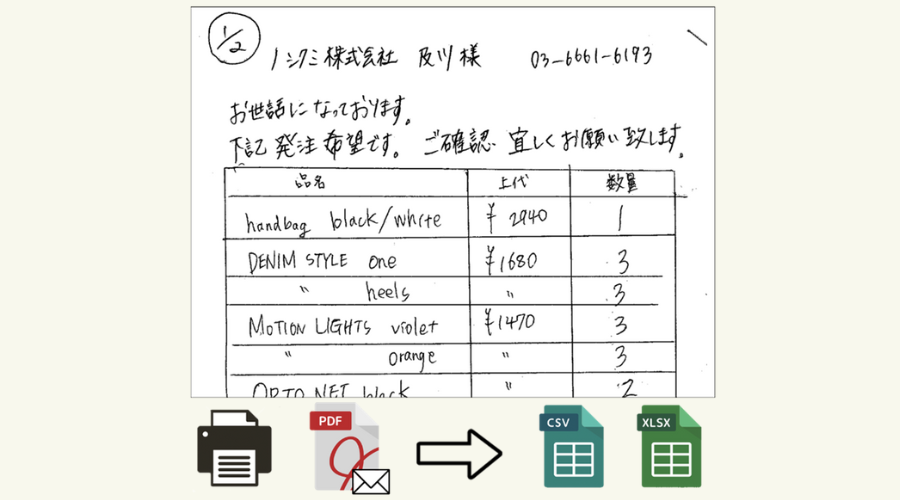 1/2
ノシクミ株式会社 及川様 03-6661-6193
お世話になっております。
下記発注希望です。ご確認宜しくお願い致します。
品名 上代 数量
handbag black/white ¥2940 1
DENIM STYLE one ¥1680 3
〃 heels 〃 3
MOTION LIGHTS violet ¥1470 3
〃 orange 〃 3
OPTO NET black 〃 2
PDF CSV XLSX